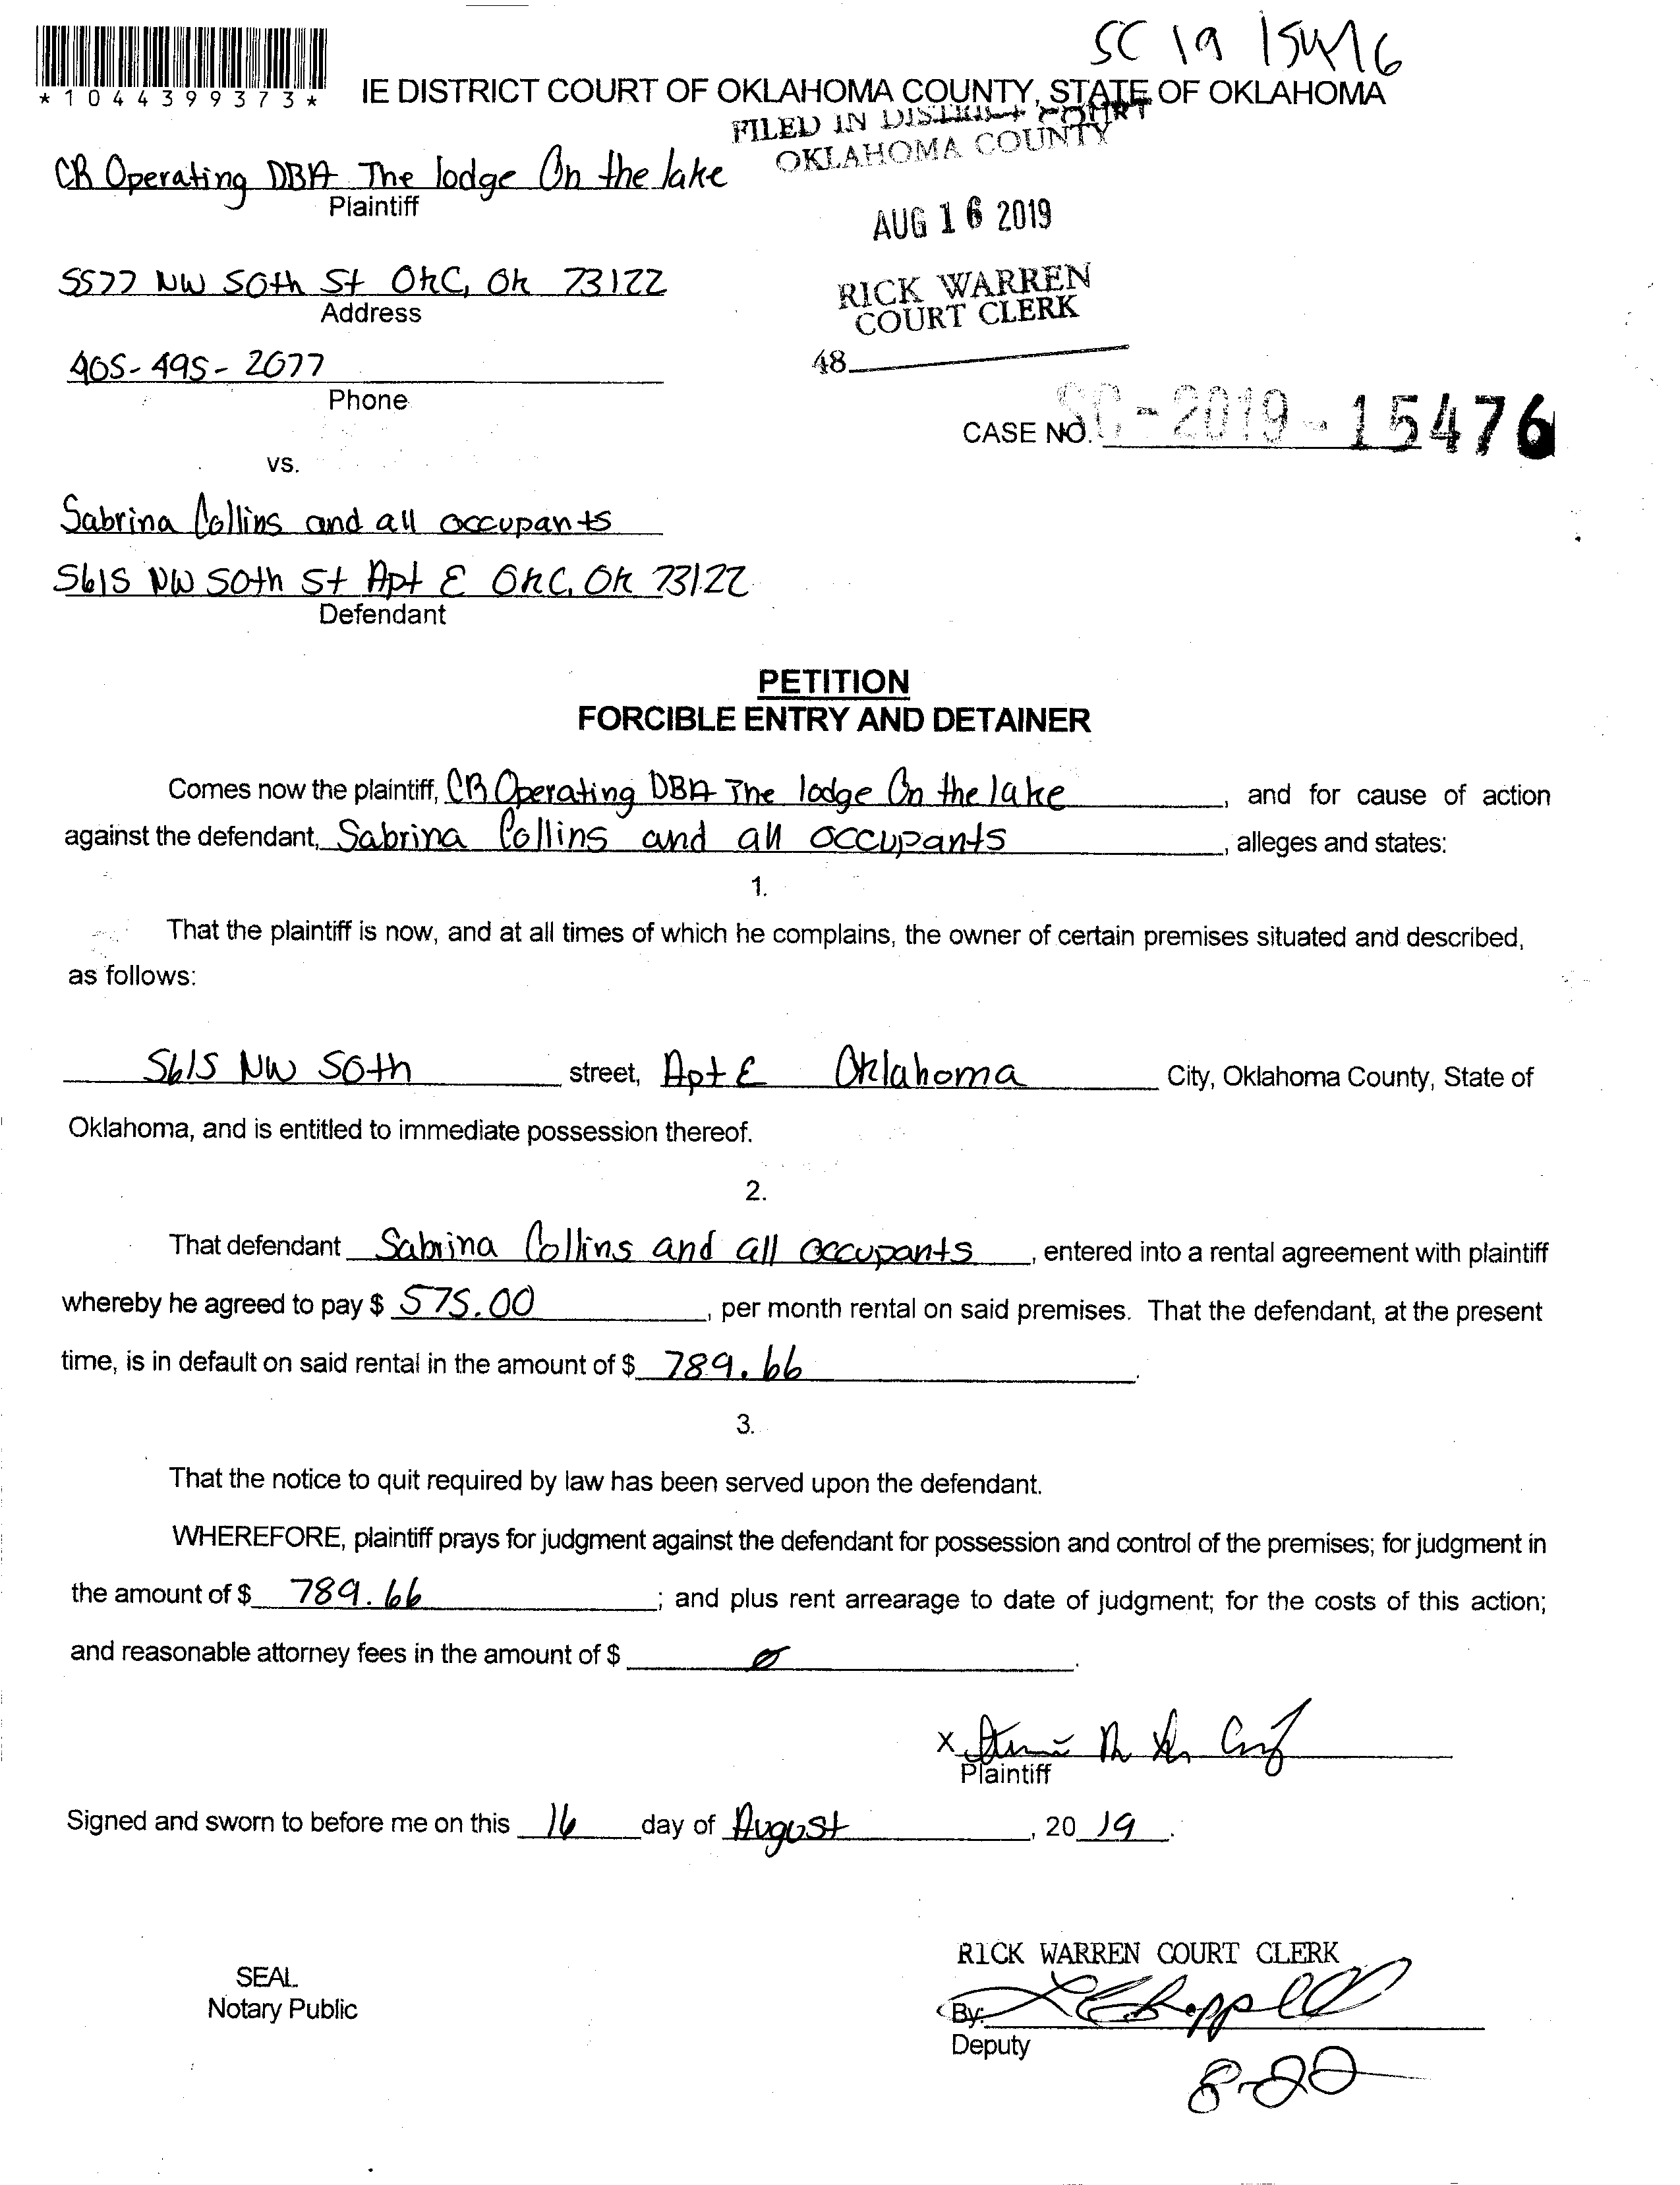 SC 19 15476
*1044399373*
IE DISTRICT COURT OF OKLAHOMA COUNTY, STATE OF OKLAHOMA
FILED IN DISTRICT COURT
OKLAHOMA COUNTY
CR Operating DBA The lodge On the lake
Plaintiff
AUG 16 2019
5577 NW 50th St OKC, OK 73122
Address
RICK WARREN
COURT CLERK
405-495-2077
Phone
48
CASE NO. SC-2019-15476
vs.
Sabrina Collins and all occupants
5615 NW 50th St Apt E OKC, OK 73122
Defendant
PETITION
FORCIBLE ENTRY AND DETAINER
Comes now the plaintiff, CR Operating DBA The lodge On the lake, and for cause of action
against the defendant, Sabrina Collins and all occupants, alleges and states:
1.
That the plaintiff is now, and at all times of which he complains, the owner of certain premises situated and described,
as follows:
5615 NW 50th street, Apt E Oklahoma City, Oklahoma County, State of
Oklahoma, and is entitled to immediate possession thereof.
2.
That defendant Sabrina Collins and all occupants, entered into a rental agreement with plaintiff
whereby he agreed to pay $ 575.00, per month rental on said premises. That the defendant, at the present
time, is in default on said rental in the amount of $ 789.66.
3.
That the notice to quit required by law has been served upon the defendant.
WHEREFORE, plaintiff prays for judgment against the defendant for possession and control of the premises; for judgment in
the amount of $ 789.66; and plus rent arrearage to date of judgment; for the costs of this action;
and reasonable attorney fees in the amount of $ ø.
X
Plaintiff
Signed and sworn to before me on this 16 day of August, 2019.
RICK WARREN COURT CLERK
SEAL
Notary Public
By:
Deputy
8-22